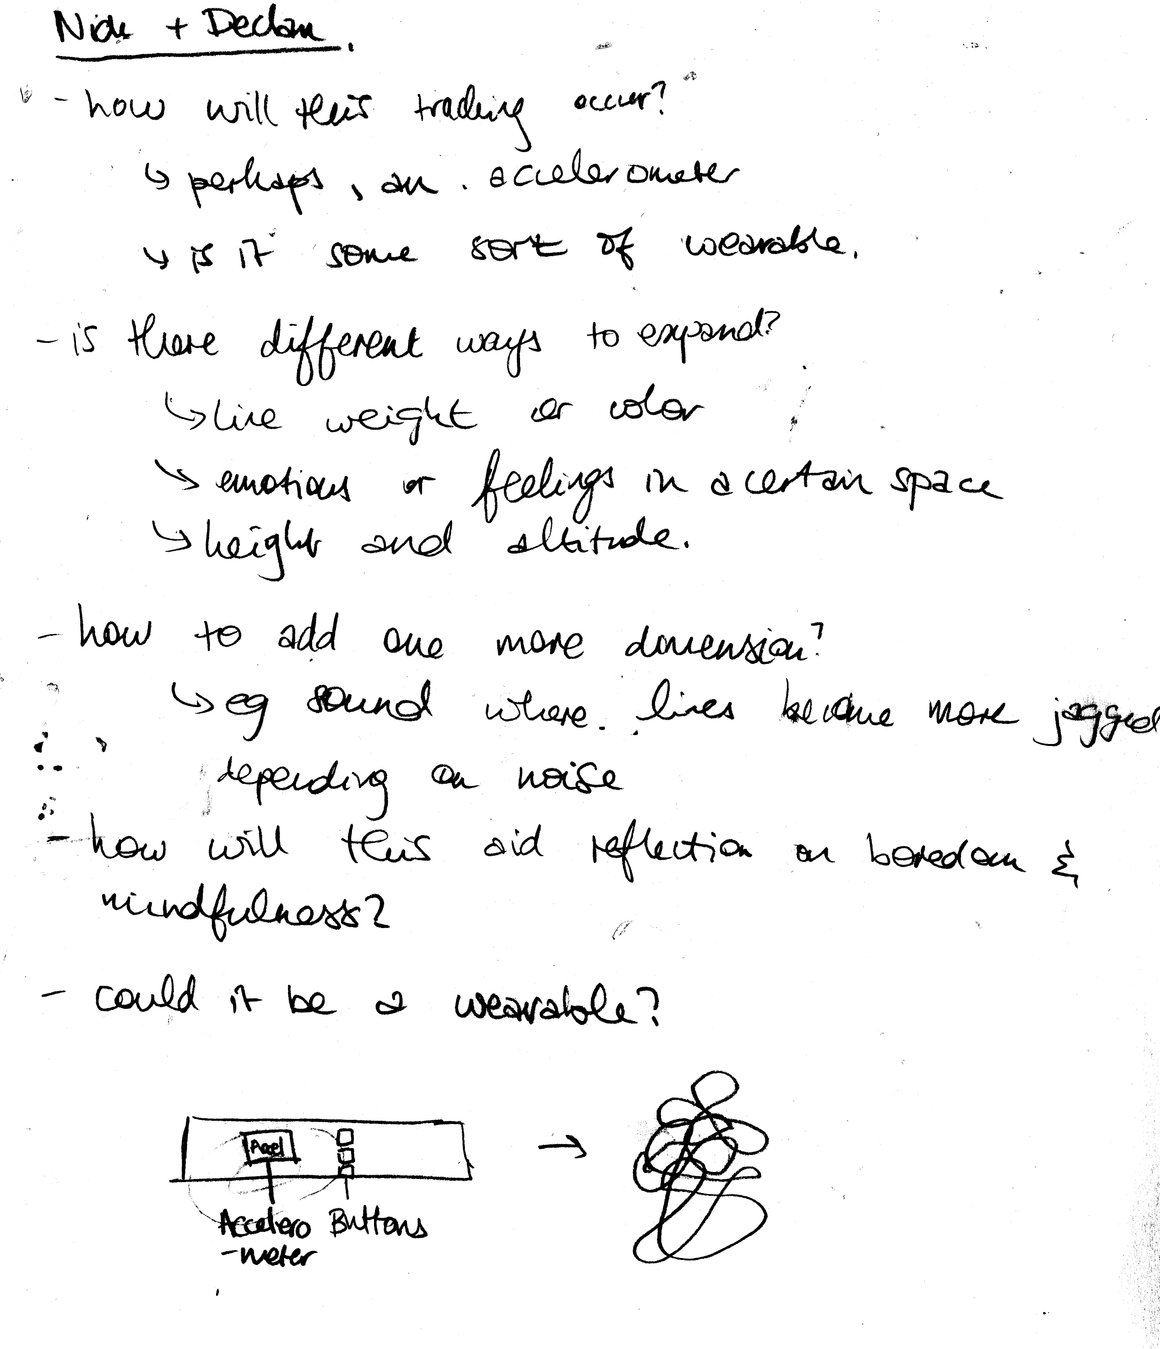 Nick + Declan.
- how will this trading occur?
↳ perhaps, an accelerometer
↳ is it some sort of wearable.
- is there different ways to expand?
↳ line weight or color
↳ emotions or feelings in a certain space
↳ height and altitude.
- how to add one more dimension?
↳ eg sound where lines become more jagged
depending on noise
- how will this aid reflection on boredom &
mindfulness?
- could it be a wearable?
Accel
→
Accelero Buttons
-meter